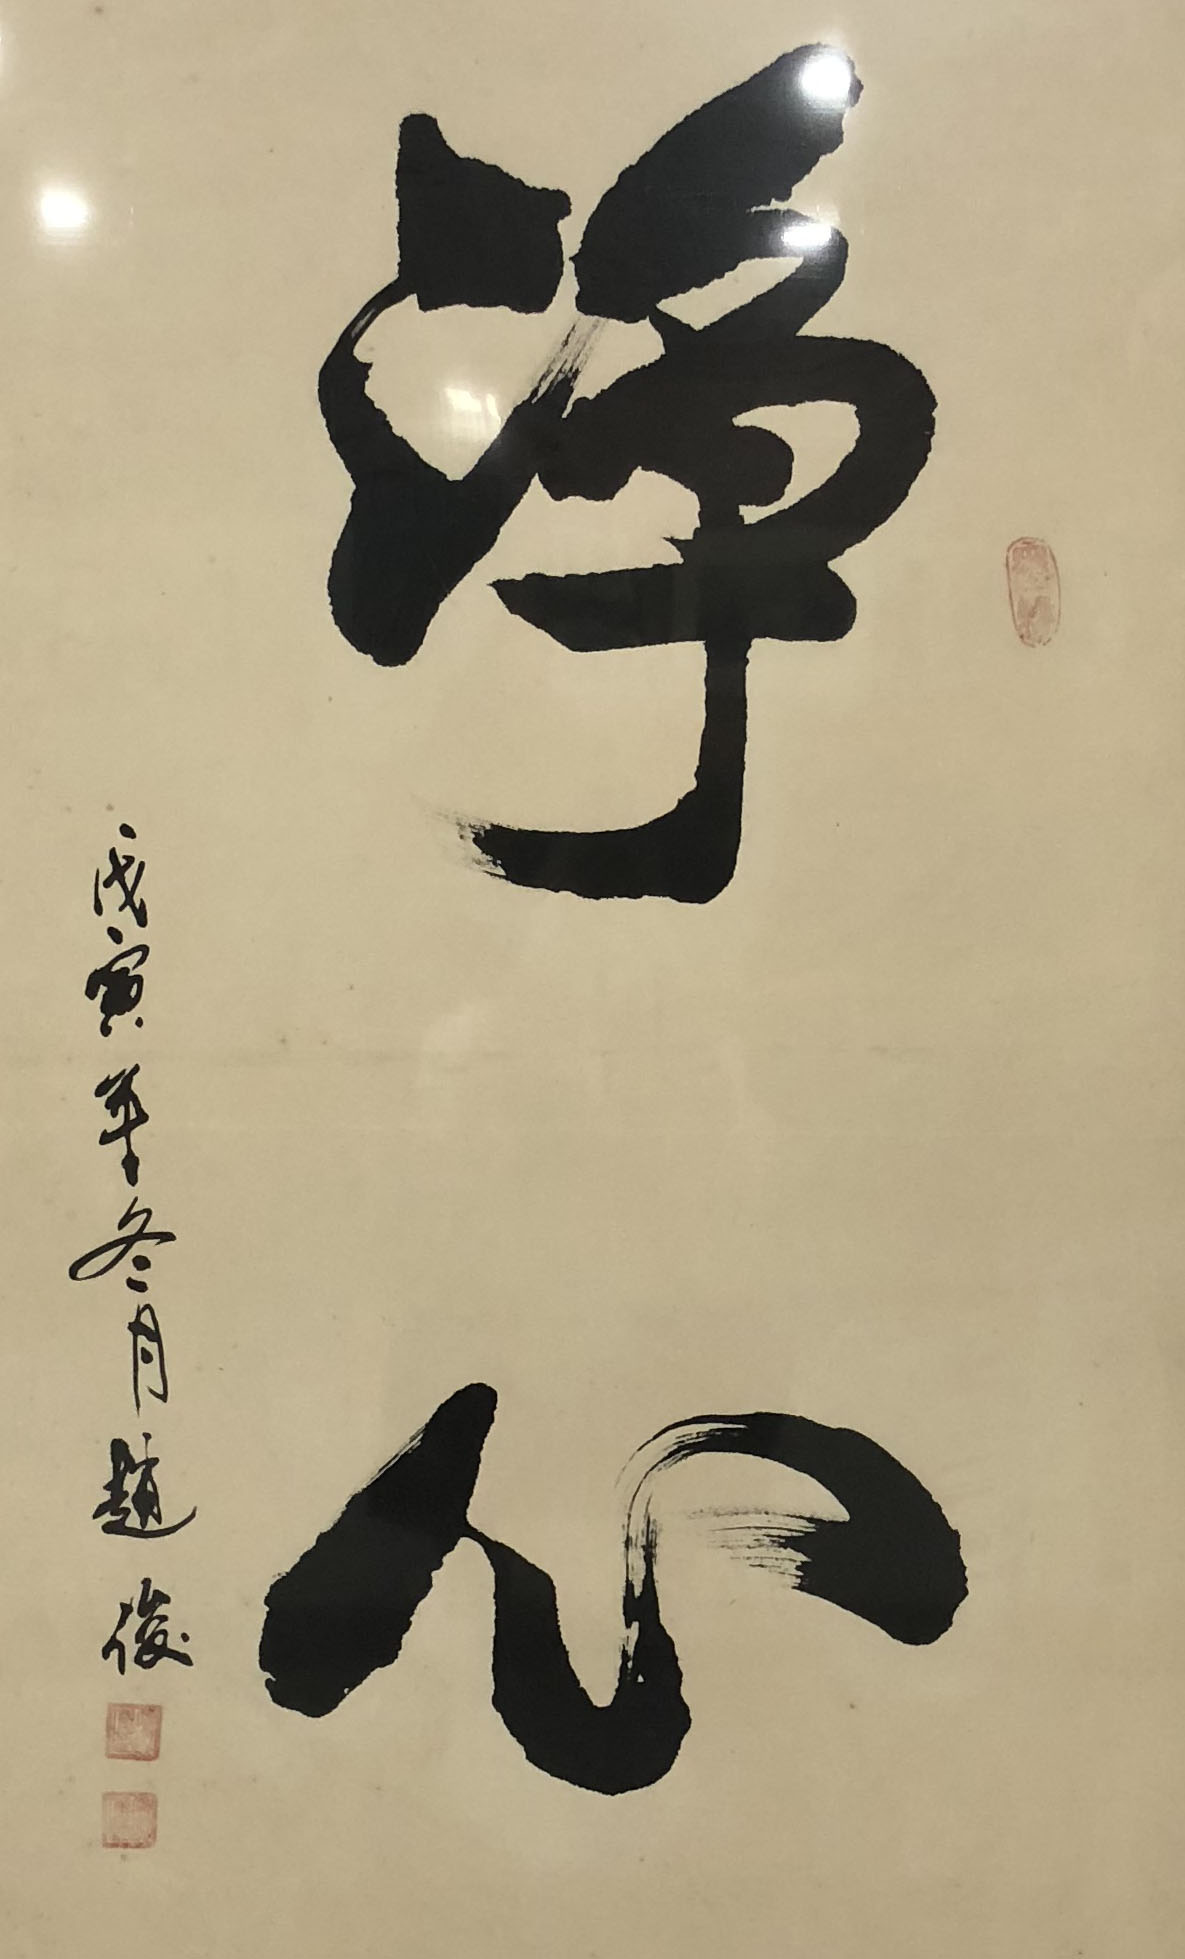 淨心
戊寅年冬月趙俊